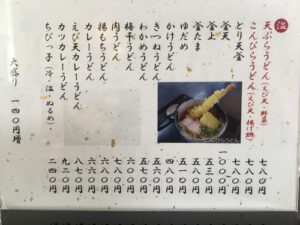 天ぷらうどん(えび天・野菜) 七八〇円
こんぴらうどん(えび天・揚げ餅) 七八〇円
とり天釜 七八〇円
釜天
釜上 五三〇円
釜たま 五八〇円
ゆだめ 五一〇円
かけうどん 四八〇円
きつねうどん 五八〇円
わかめうどん 五七〇円
梅干うどん
肉うどん 六八〇円
揚もちうどん 六六〇円
カレーうどん
えび天カレーうどん 八七〇円
カツカレーうどん 九二〇円
ちびっ子(冷・温・ぬるめ) 二四〇円
大盛り 一四〇円増